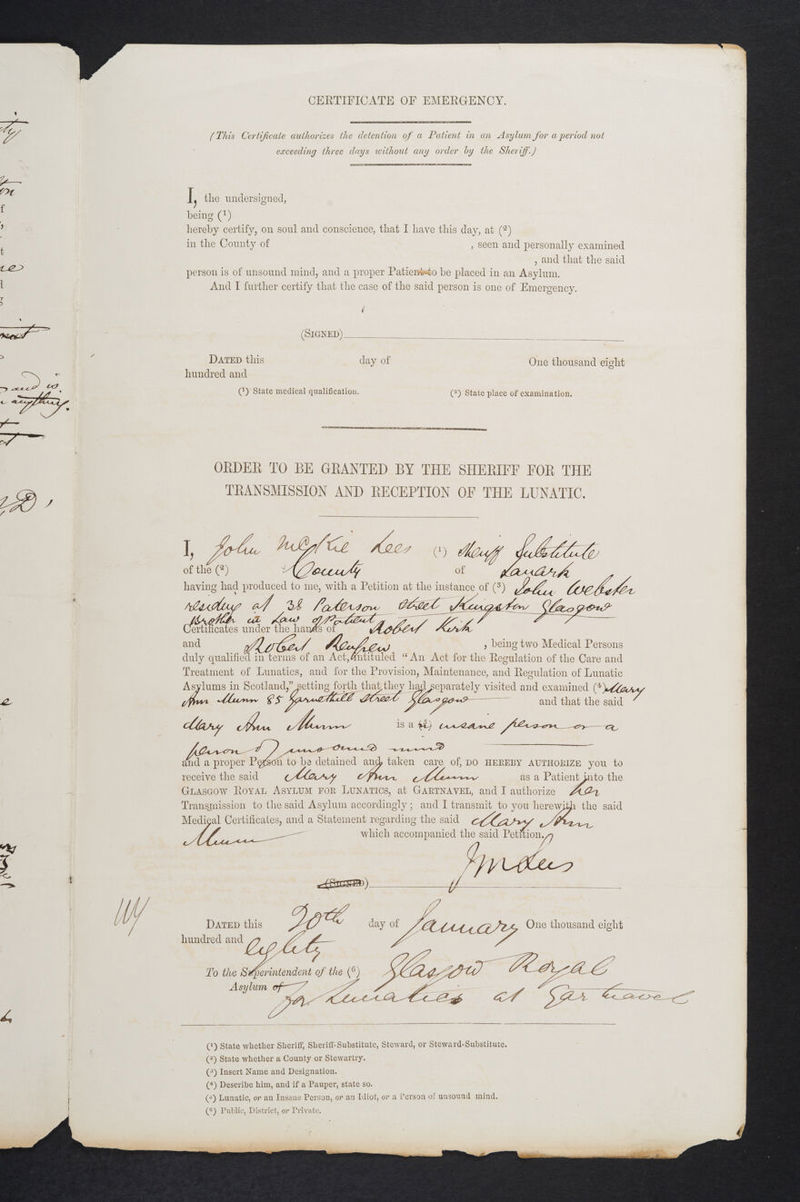 CERTIFICATE OF EMERGENCY.
(This Certificate authorizes the detention of a Patient in an Asylum for a period not
exceeding three days without any order by the Sheriff.)
I, the undersigned,
being (¹)
hereby certify, on soul and conscience, that I have this day, at (²)
in the County of , seen and personally examined
, and that the said
person is of unsound mind, and a proper Patient to be placed in an Asylum.
And I further certify that the case of the said person is one of Emergency.
(SIGNED)
DATED this day of One thousand eight
hundred and
(¹) State medical qualification. (²) State place of examination.
ORDER TO BE GRANTED BY THE SHERIFF FOR THE
TRANSMISSION AND RECEPTION OF THE LUNATIC.
I, John McKie Lees (¹) Sheriff Substitute
of the (²) County of Lanark
having had produced to me, with a Petition at the instance of (³) John Webster
residing at 38 Paterson Street Kingston Glasgow
Brother in Law of Patient
Certificates under the hands of Robert Kirk
and Robert Renfrew , being two Medical Persons
duly qualified in terms of an Act, intituled “An Act for the Regulation of the Care and
Treatment of Lunatics, and for the Provision, Maintenance, and Regulation of Lunatic
Asylums in Scotland,” setting forth that they had separately visited and examined (⁴) Mary
Ann Munn 85 Garnethill Street Glasgow and that the said
Mary Ann Munn is a (⁵) insane person or a
person of unsound mind
and a proper Person to be detained and taken care of, DO HEREBY AUTHORIZE you to
receive the said Mary Ann Munn as a Patient into the
GLASGOW ROYAL ASYLUM FOR LUNATICS, at GARTNAVEL, and I authorize her
Transmission to the said Asylum accordingly; and I transmit to you herewith the said
Medical Certificates, and a Statement regarding the said Mary Ann
Munn which accompanied the said Petition.
(SIGNED) JMLees
DATED this 20th day of January One thousand eight
hundred and eighty
To the Superintendent of the (⁶) Glasgow Royal
Asylum of for Lunatics at Gartnavel
(¹) State whether Sheriff, Sheriff-Substitute, Steward, or Steward-Substitute.
(²) State whether a County or Stewartry.
(³) Insert Name and Designation.
(⁴) Describe him, and if a Pauper, state so.
(⁵) Lunatic, or an Insane Person, or an Idiot, or a Person of unsound mind.
(⁶) Public, District, or Private.